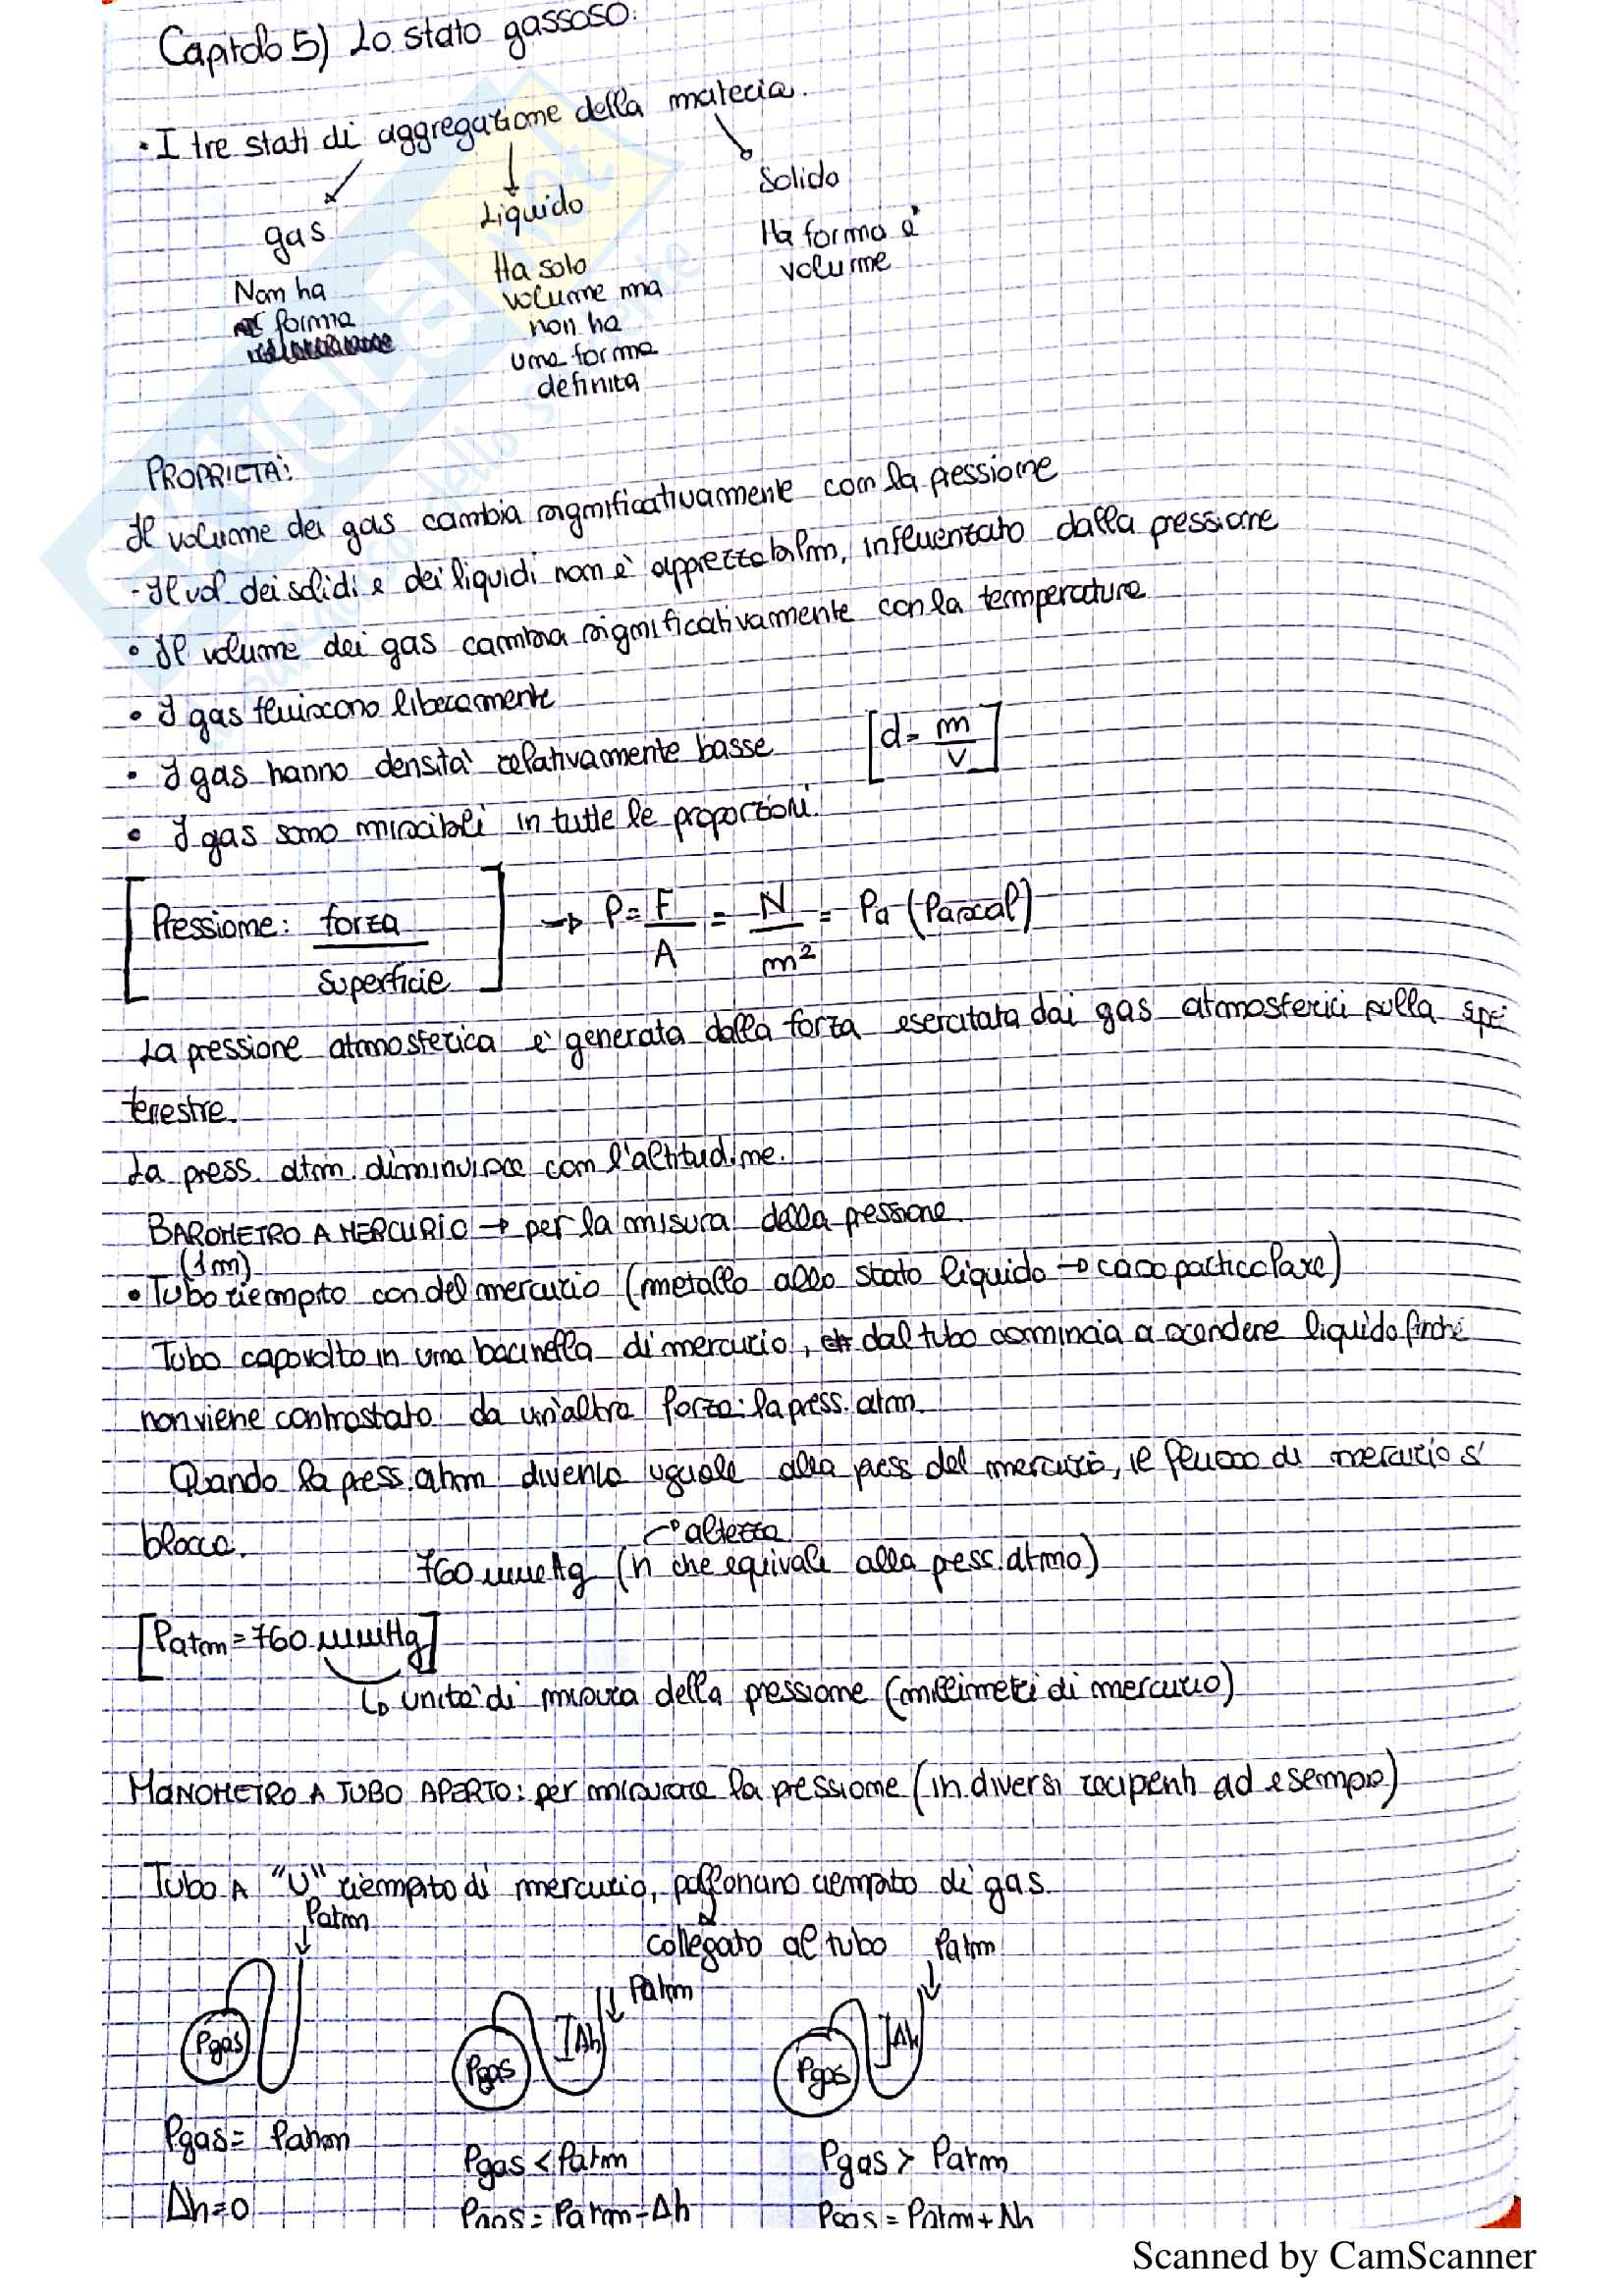 Capitolo 5) Lo stato gassoso.
• I tre stati di aggregazione della materia.
gas
Liquido
Solido
Non ha
forma
Ha solo
volume ma
non ha
una forma
definita
Ha forma e
volume
PROPRIETA':
Il volume dei gas cambia significativamente con la pressione
- Il vol dei solidi e dei liquidi non è apprezzabilm, influenzato dalla pressione
• Il volume dei gas cambia significativamente con la temperatura
• I gas fluiscono liberamente
• I gas hanno densità relativamente basse [d = m/V]
• I gas sono miscibili in tutte le proporzioni.
[Pressione: forza/superficie] → P = F/A = N/m² = Pa (Pascal)
La pressione atmosferica è generata dalla forza esercitata dai gas atmosferici sulla
terrestre.
La press. atm. diminuisce con l'altitudine.
BAROMETRO A MERCURIO → per la misura della pressione.
(1m)
• Tubo riempito con del mercurio (metallo allo stato liquido → caso particolare)
Tubo capovolto in una bacinella di mercurio, dal tubo comincia a scendere liquido finché
non viene contrastato da un'altra forza: la press. atm.
Quando la press. atm diventa uguale alla press del mercurio, il flusso di mercurio si
blocca.
→ altezza
760 mmHg (h che equivale alla press. atmo)
[Patm = 760 mmHg]
↳ unità di misura della pressione (millimetri di mercurio)
MANOMETRO A TUBO APERTO: per misurare la pressione (in diversi recipienti ad esempio)
Tubo A "U" riempito di mercurio, palloncino riempito di gas.
collegato al tubo
Patm
Pgas
Pgas = Patm
Δh=0
Patm
Δh
Pgas
Pgas < Patm
Pgas = Patm - Δh
Patm
Δh
Pgas
Pgas > Patm
Pgas = Patm + Δh
Scanned by CamScanner